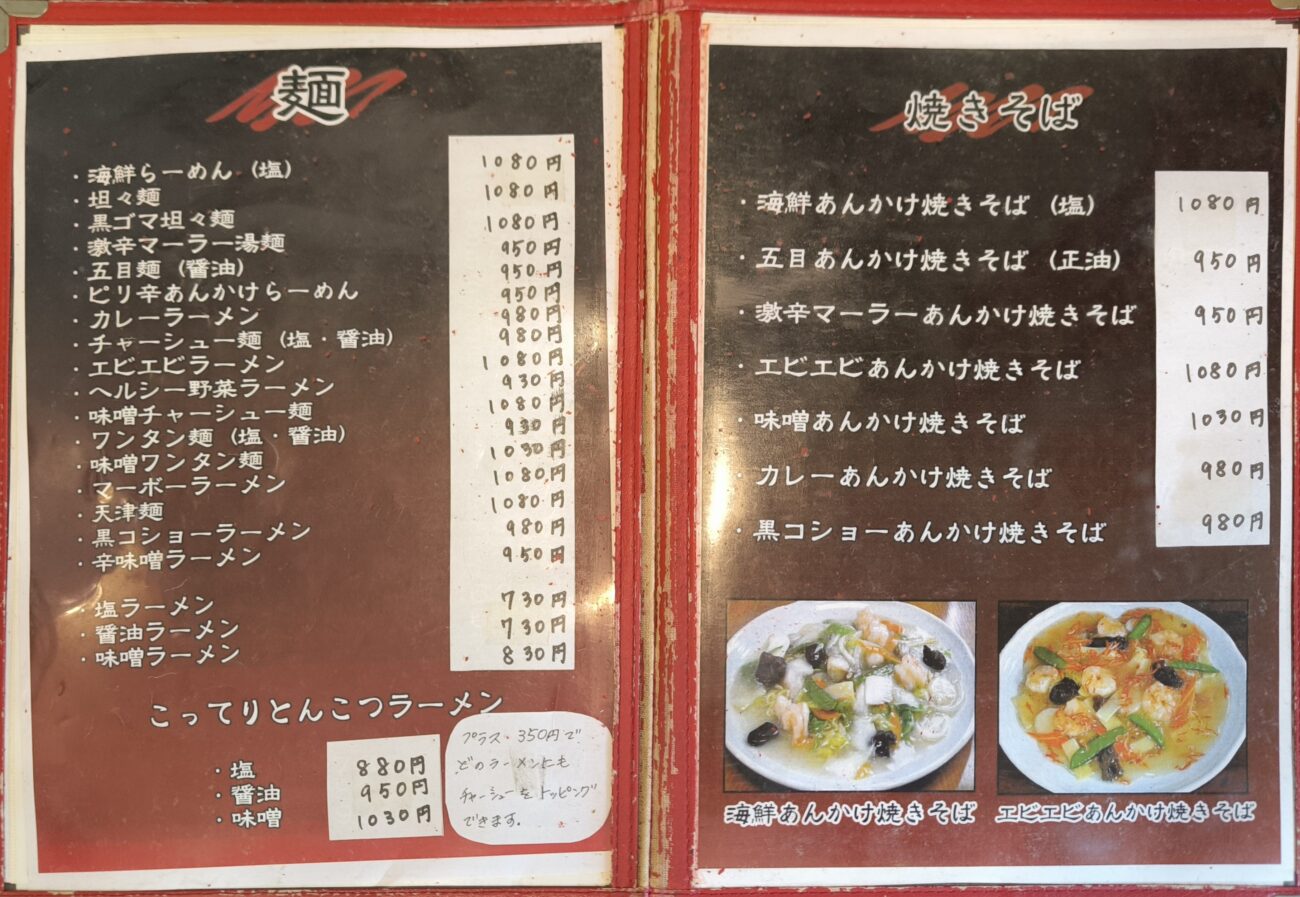 麺
・海鮮らーめん（塩） 1080円
・坦々麺 1080円
・黒ゴマ坦々麺 1080円
・激辛マーラー湯麺 950円
・五目麺（醤油） 950円
・ピリ辛あんかけらーめん 950円
・カレーラーメン 980円
・チャーシュー麺（塩・醤油） 980円
・エビエビラーメン 1080円
・ヘルシー野菜ラーメン 930円
・味噌チャーシュー麺 1080円
・ワンタン麺（塩・醤油） 930円
・味噌ワンタン麺 1030円
・マーボーラーメン 1080円
・天津麺 1080円
・黒コショーラーメン 980円
・辛味噌ラーメン 950円
・塩ラーメン 730円
・醤油ラーメン 730円
・味噌ラーメン 830円
こってりとんこつラーメン
・塩 880円
・醤油 950円
・味噌 1030円
プラス 350円で
どのラーメンにも
チャーシューをトッピング
できます。
焼きそば
・海鮮あんかけ焼きそば（塩） 1080円
・五目あんかけ焼きそば（正油） 950円
・激辛マーラーあんかけ焼きそば 950円
・エビエビあんかけ焼きそば 1080円
・味噌あんかけ焼きそば 1030円
・カレーあんかけ焼きそば 980円
・黒コショーあんかけ焼きそば 980円
海鮮あんかけ焼きそば
エビエビあんかけ焼きそば